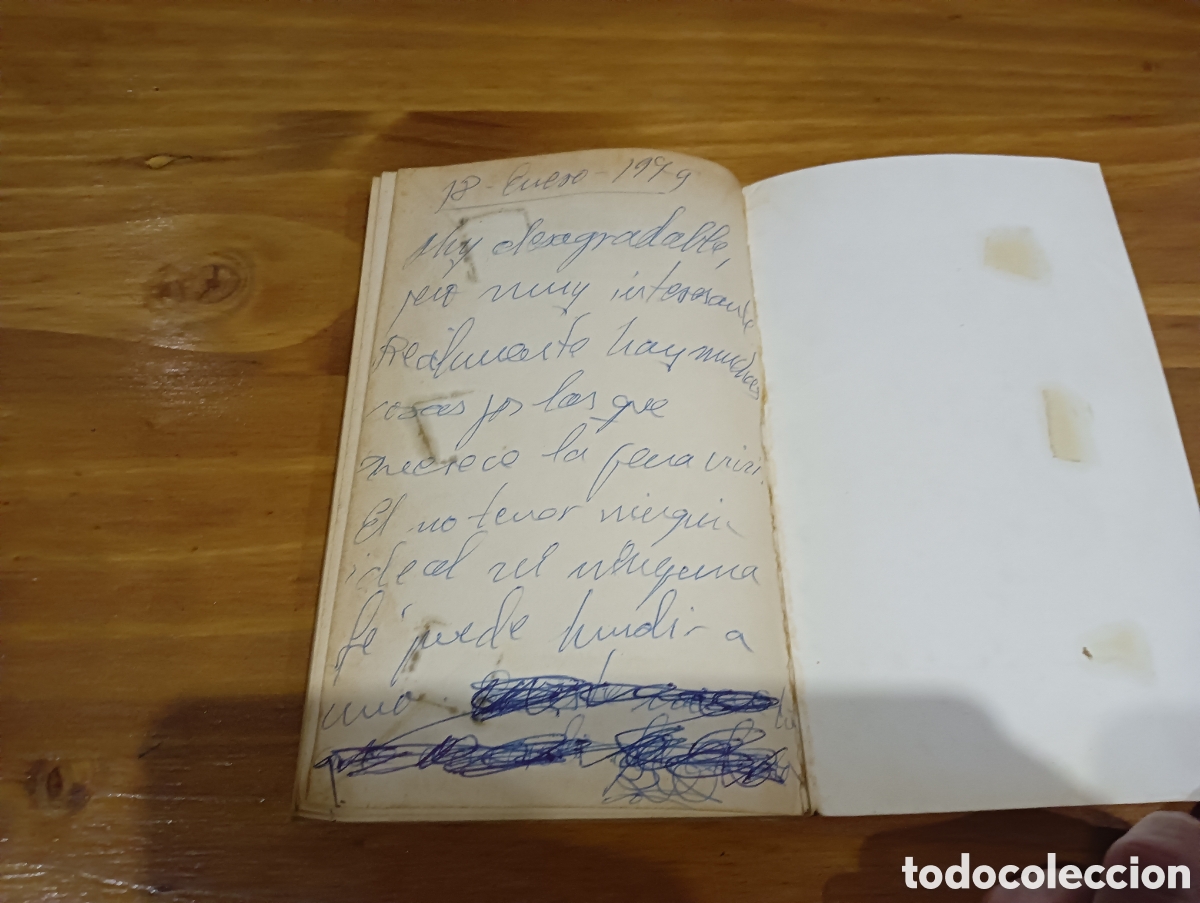 18 - Enero - 1979
Muy desagradable,
pero muy interesante
Realmente hay muchas
cosas por las que
merece la pena vivir.
El no tener ningún
ideal ni ninguna
fé puede hundir a
uno
todocoleccion